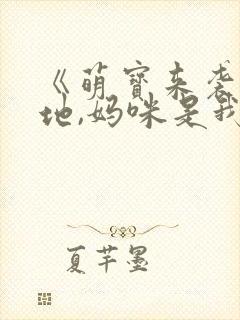 《萌宝来袭
地,妈咪是我
夏芊墨